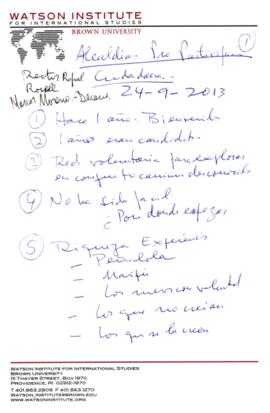 WATSON INSTITUTE
FOR INTERNATIONAL STUDIES
BROWN UNIVERSITY
1
Alcaldías Pro
Rector Rafael
Ciudadana
24-9-2013
Moreno - Decano
1 Hace 1 año. Bienvenido
2 años eran candidatos.
3 Red voluntaria para explorar
en conjunto caminos desconocidos
4 No ha sido facil
¿Por donde empezar
5 Riqueza Experiencias
–
–
– Los nuevos con voluntad
– Los que no creían
– Los que se la creen
WATSON INSTITUTE FOR INTERNATIONAL STUDIES
BROWN UNIVERSITY
111 THAYER STREET, BOX 1970
PROVIDENCE, RI 02912-1970
T 401.863.2809 F 401.863.1270
WATSON_INSTITUTE@BROWN.EDU
WWW.WATSONINSTITUTE.ORG